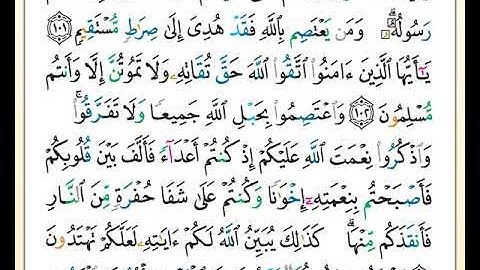 رَسُولُهُۥۗ وَمَن يَعْتَصِم بِٱللَّهِ فَقَدْ هُدِىَ إِلَىٰ صِرَٰطٍ مُّسْتَقِيمٍ ١٠١
يَٰٓأَيُّهَا ٱلَّذِينَ ءَامَنُوا۟ ٱتَّقُوا۟ ٱللَّهَ حَقَّ تُقَاتِهِۦ وَلَا تَمُوتُنَّ إِلَّا وَأَنتُم
مُّسْلِمُونَ ١٠٢ وَٱعْتَصِمُوا۟ بِحَبْلِ ٱللَّهِ جَمِيعًا وَلَا تَفَرَّقُوا۟ۚ
وَٱذْكُرُوا۟ نِعْمَتَ ٱللَّهِ عَلَيْكُمْ إِذْ كُنتُمْ أَعْدَآءً فَأَلَّفَ بَيْنَ قُلُوبِكُمْ
فَأَصْبَحْتُم بِنِعْمَتِهِۦٓ إِخْوَٰنًا وَكُنتُمْ عَلَىٰ شَفَا حُفْرَةٍ مِّنَ ٱلنَّارِ
فَأَنقَذَكُم مِّنْهَاۗ كَذَٰلِكَ يُبَيِّنُ ٱللَّهُ لَكُمْ ءَايَٰتِهِۦ لَعَلَّكُمْ تَهْتَدُونَ